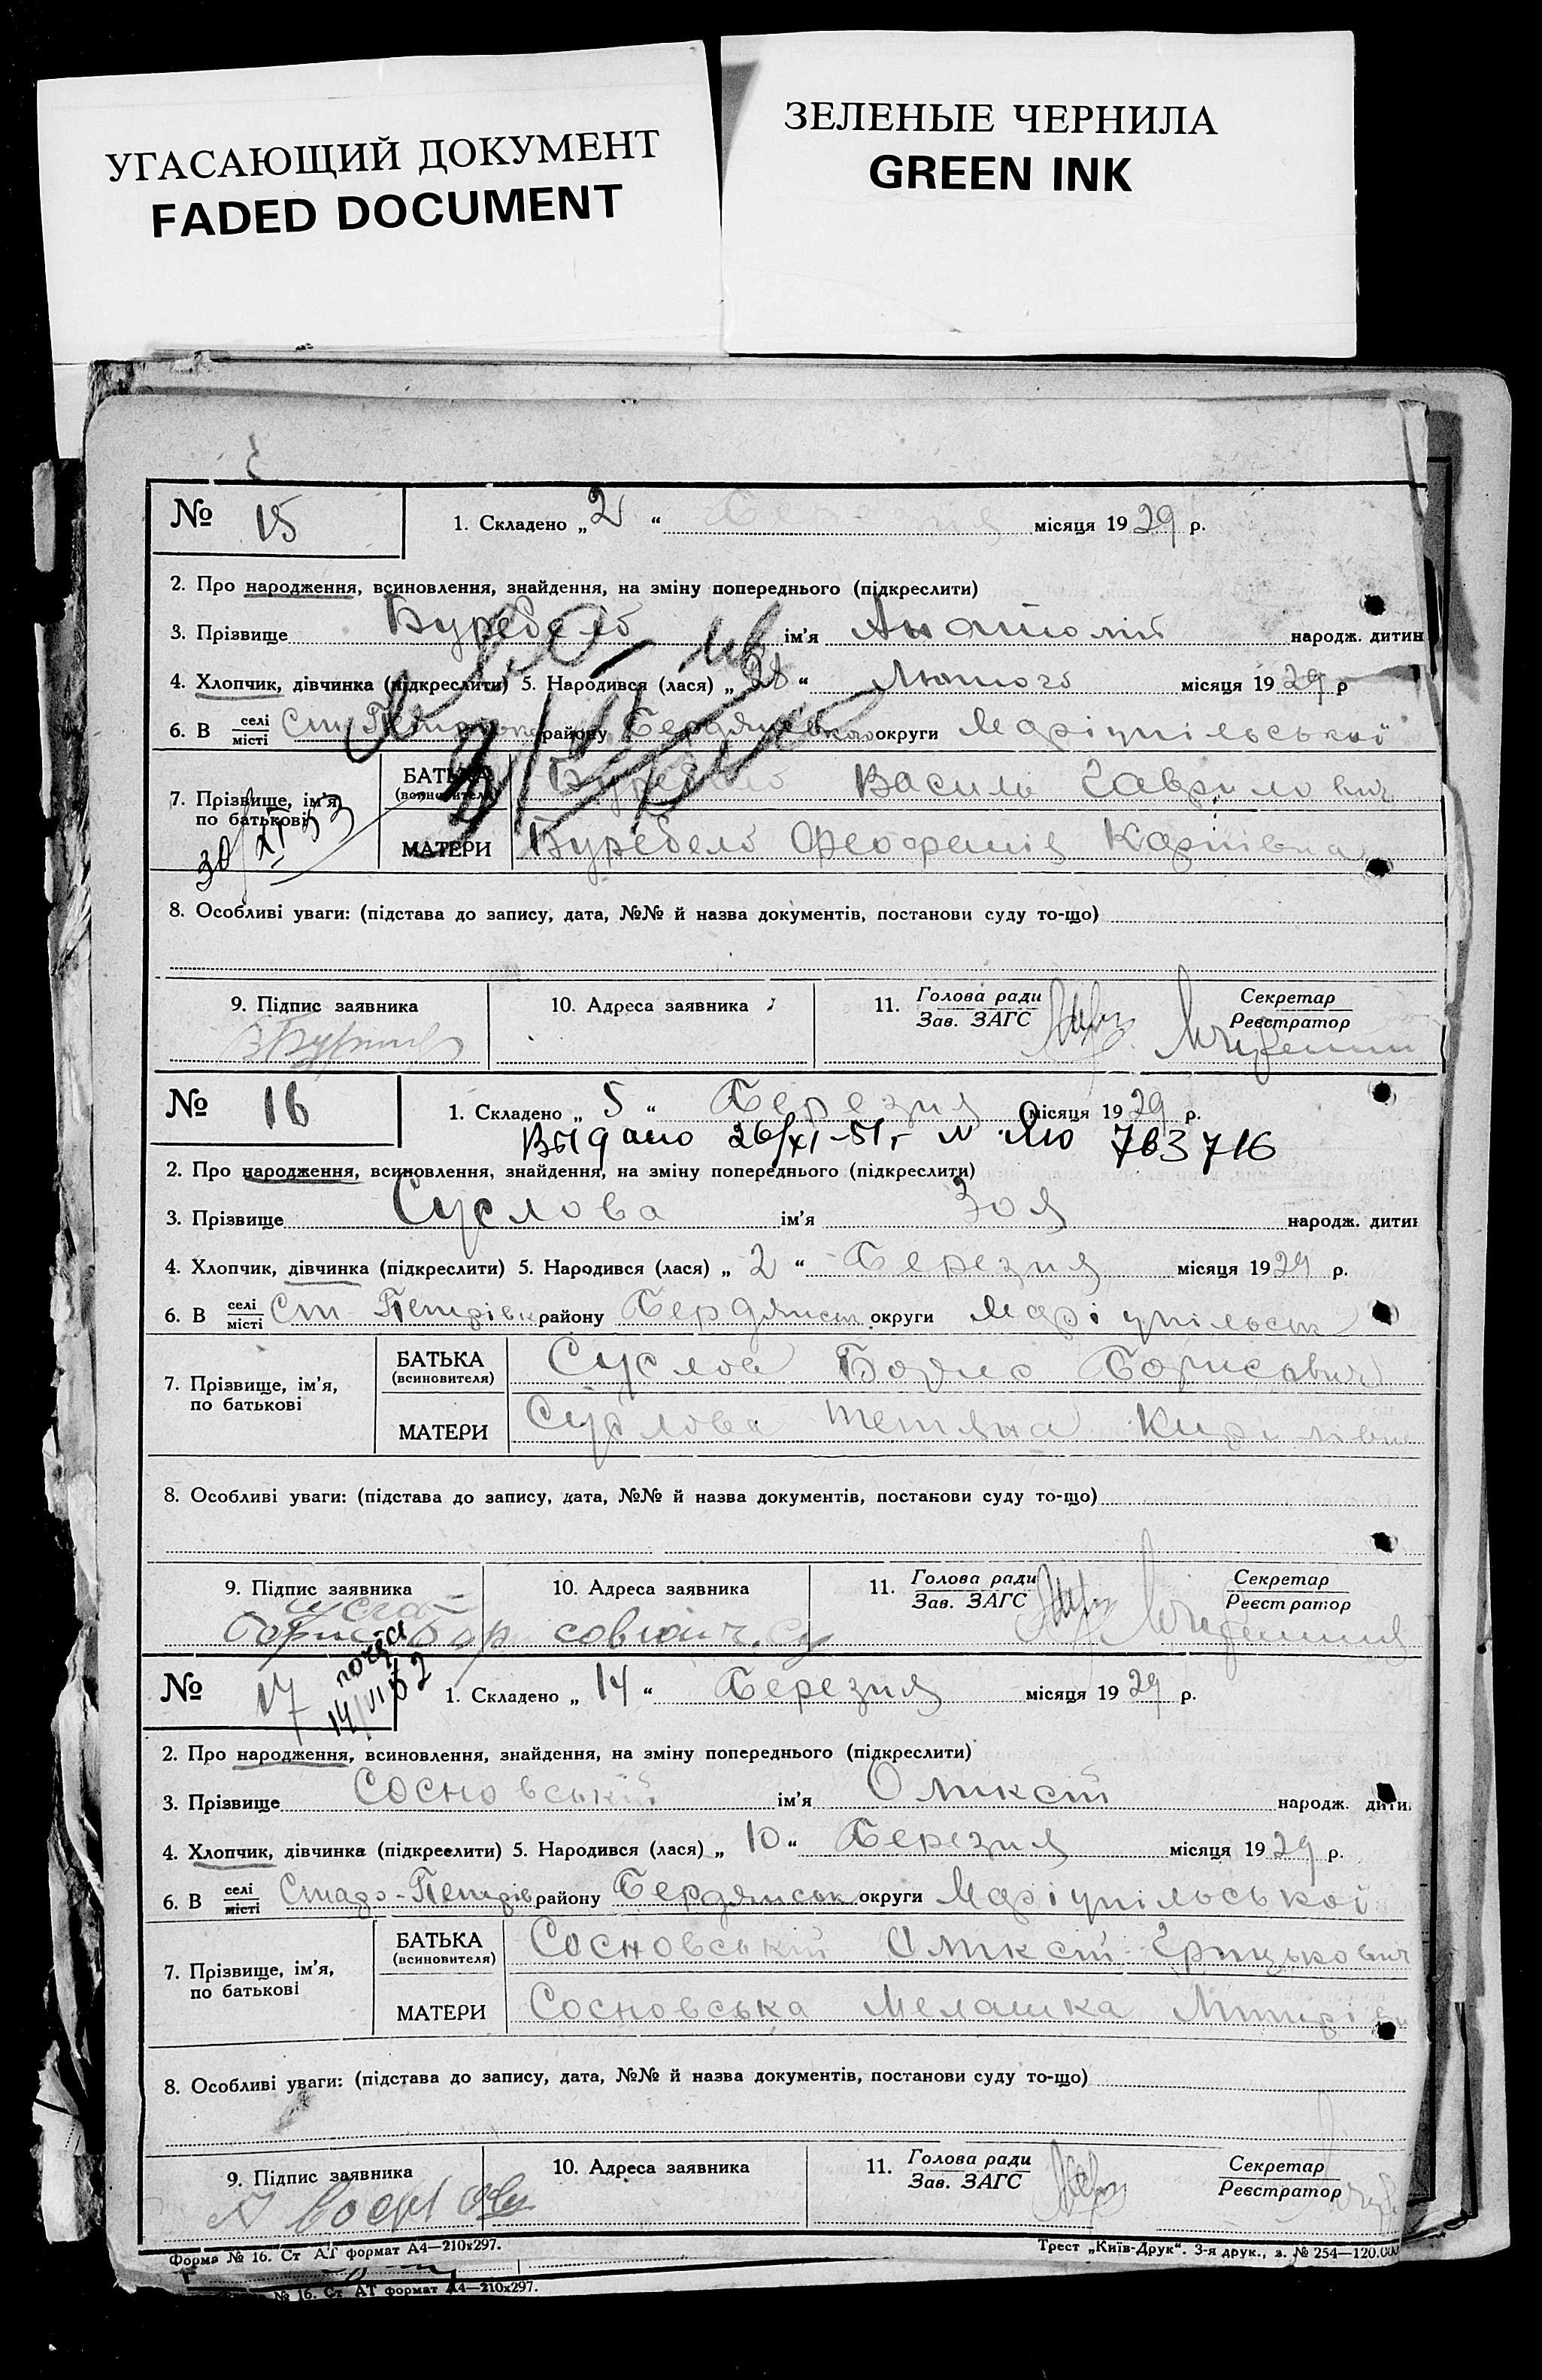 УГАСАЮЩИЙ ДОКУМЕНТ
FADED DOCUMENT
ЗЕЛЕНЫЕ ЧЕРНИЛА
GREEN INK
№ 15
1. Складено „2“ місяця 1929 р.
2. Про народження, всиновлення, знайдення, на зміну попереднього (підкреслити)
3. Прізвище ім'я Анатолій народж. дитин
4. Хлопчик, дівчинка (підкреслити) 5. Народився (лася) „28“ Лютого місяця 1929 р
6. В селі місті Ст Петр району Бердянсько округи Маріупільської
7. Прізвище, ім'я, по батькові
БАТЬКА (всиновителя) Василь Гаврилович
МАТЕРИ Феофанія Карпівна
30/XI 53
8. Особливі уваги: (підстава до запису, дата, №№ й назва документів, постанови суду то-що)
9. Підпис заявника 10. Адреса заявника 11. Голова ради Зав. ЗАГС Секретар Реєстратор
№ 16
1. Складено „5“ Березня місяця 1929 р.
Выдано 26/XI-51г N 763716
2. Про народження, всиновлення, знайдення, на зміну попереднього (підкреслити)
3. Прізвище Суслова ім'я Зоя народж. дитин
4. Хлопчик, дівчинка (підкреслити) 5. Народився (лася) „2“ Березня місяця 1929 р.
6. В селі місті Ст Петрівк району Бердянськ округи Маріупільськ
7. Прізвище, ім'я, по батькові
БАТЬКА (всиновителя) Суслов Борисович
МАТЕРИ Суслова Тетяна Кирилівна
8. Особливі уваги: (підстава до запису, дата, №№ й назва документів, постанови суду то-що)
9. Підпис заявника 10. Адреса заявника 11. Голова ради Зав. ЗАГС Секретар Реєстратор
№ 17
14/VI 62
1. Складено „14“ Березня місяця 1929 р.
2. Про народження, всиновлення, знайдення, на зміну попереднього (підкреслити)
3. Прізвище Сосновський ім'я Олексій народж. дити
4. Хлопчик, дівчинка (підкреслити) 5. Народився (лася) „10“ Березня місяця 1929 р.
6. В селі місті Старо-Петрів району Бердянськ округи Маріупільської
7. Прізвище, ім'я, по батькові
БАТЬКА (всиновителя) Сосновський Олексій Грицькович
МАТЕРИ Сосновська Мелашка
8. Особливі уваги: (підстава до запису, дата, №№ й назва документів, постанови суду то-що)
9. Підпис заявника 10. Адреса заявника 11. Голова ради Зав. ЗАГС Секретар Реєстратор
Форма № 16. Ст АТ формат А4—210х297.
Трест „Київ-Друк“. 3-я друк., з. № 254—120.000
№ 16. Ст АТ формат А4—210х297.